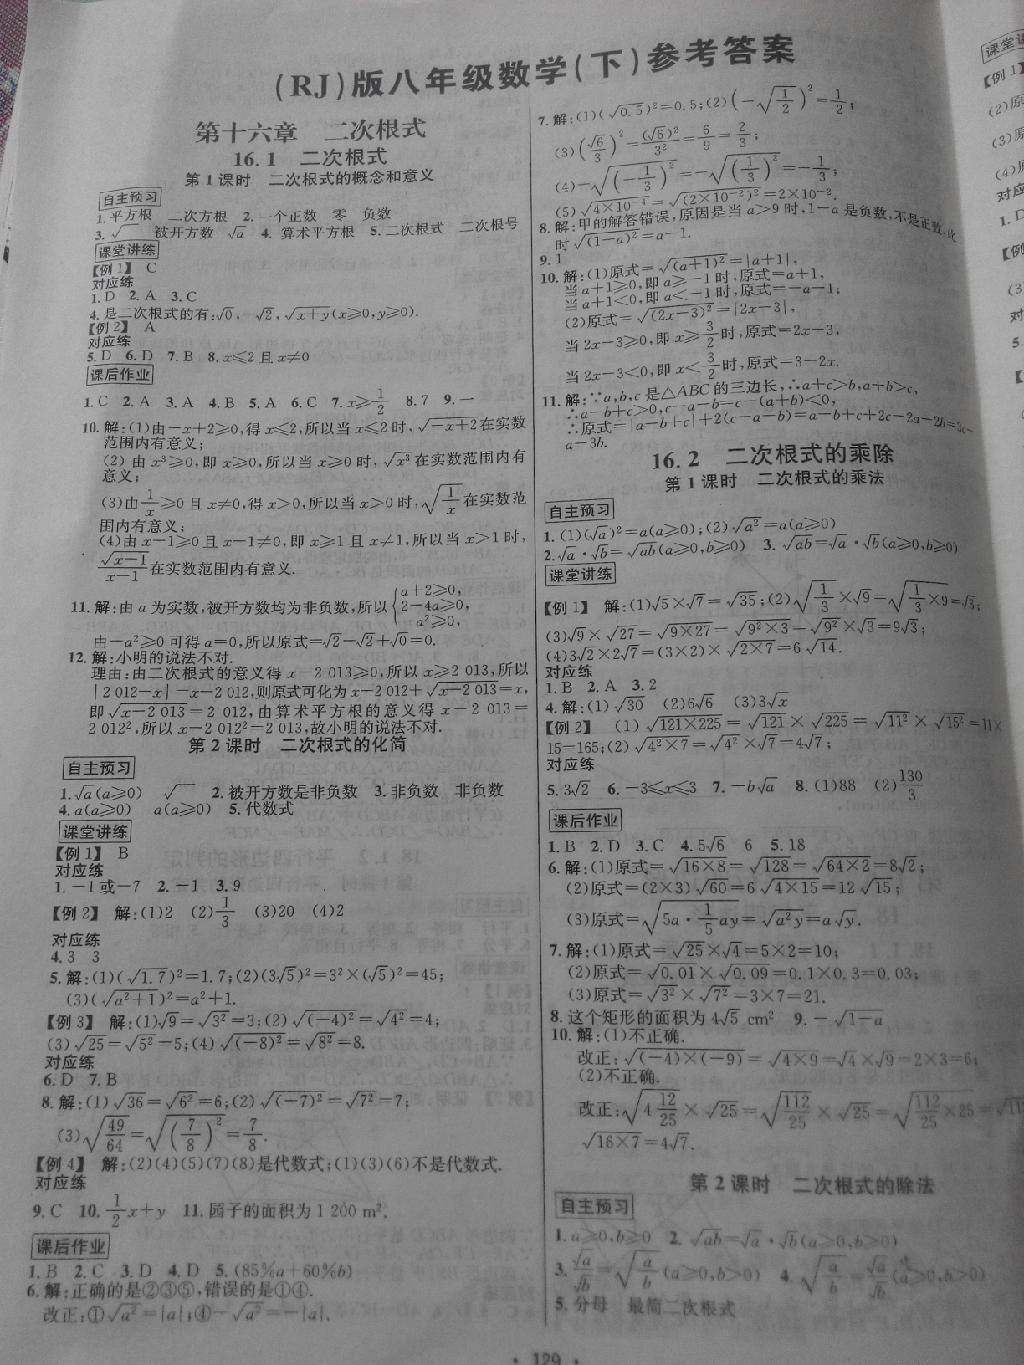 (RJ)版八年级数学(下)参考答案
第十六章 二次根式
16.1 二次根式
第1课时 二次根式的概念和意义
自主预习
1.平方根 二次方根 2.一个正数 零 负数
3.√ 被开方数 √a 4.算术平方根 5.二次根式 二次根号
课堂讲练
【例1】 C
对应练
1.D 2.A 3.C
4.是二次根式的有:√0, √2,√(x+y)(x≥0,y≥0).
【例2】 A
对应练
5.D 6.D 7.B 8.x≤2且x≠0
课后作业
1.C 2.A 3.A 4.B 5.A 6.C 7.x≥1/2 8.7 9.一
10.解:(1)由-x+2≥0,得x≤2,所以当x≤2时,√(-x+2)在实数
范围内有意义;
(2)由x³≥0,即x≥0,所以当x≥0时,√(x³)在实数范围内有
意义;
(3)由1/x≥0且x≠0,得x>0,所以当x>0时,√(1/x)在实数范
围内有意义;
(4)由x-1≥0且x-1≠0,即x≥1且x≠1,所以当x>1时,
√(x-1)/(x-1)在实数范围内有意义.
11.解:由a为实数,被开方数均为非负数,所以{a+2≥0, 2-4a≥0, -a²≥0,
由-a²≥0可得a=0,所以原式=√2-√2+√0=0.
12.解:小明的说法不对.
理由:由二次根式的意义得x-2 013≥0,所以x≥2 013,所以
|2 012-x|=x-2 012,则原式可化为x-2 012+√(x-2 013)=x,
即√(x-2 013)=2 012,由算术平方根的意义得x-2 013=
2 012²,所以x-2 012²=2 013,故小明的说法不对.
第2课时 二次根式的化简
自主预习
1.√a(a≥0) √ 2.被开方数是非负数 3.非负数 非负数
4.a(a≥0) a(a≥0) 5.代数式
课堂讲练
【例1】 B
对应练
1.-1或-7 2.-1 3.9
【例2】 解:(1)2 (2)1/3 (3)20 (4)2
对应练
4.3 3
5.解:(1)(√1.7)²=1.7;(2)(3√5)²=3²×(√5)²=45;
(3)(√(a²+1))²=a²+1.
【例3】 解:(1)√9=√(3²)=3;(2)√((-4)²)=√(4²)=4;
(3)√25=√(5²)=5;(4)√((-8)²)=√(8²)=8.
对应练
6.D 7.B
8.解:(1)√36=√(6²)=6;(2)√((-7)²)=√(7²)=7;
(3)√(49/64)=√((7/8)²)=7/8.
【例4】 解:(2)(4)(5)(7)(8)是代数式;(1)(3)(6)不是代数式.
对应练
9.C 10.1/2x+y 11.园子的面积为1 200 m².
课后作业
1.B 2.C 3.D 4.D 5.(85%a+60%b)
6.解:正确的是②③⑤,错误的是①④.
改正:①√(a²)=|a|;④-√(a²)=-|a|.
7.解:(1)(√0.5)²=0.5;(2)(-√(1/2))²=1/2;
(3)(√6/3)²=(√6)²/3²=6/9=2/3;
(4)-√((-1/3)²)=-√((1/3)²)=-1/3;
(5)√(4×10⁻⁴)=√((2×10⁻²)²)=2×10⁻².
8.解:甲的解答错误,原因是当a>9时,1-a是负数,不是正数,此
时√((1-a)²)=a-1.
9.1
10.解:(1)原式=√((a+1)²)=|a+1|.
当a+1≥0,即a≥-1时,原式=a+1,
当a+1<0,即a<-1时,原式=-a-1;
(2)原式=√((2x-3)²)=|2x-3|,
当2x-3≥0,即x≥3/2时,原式=2x-3,
当2x-3<0,即x<3/2时,原式=3-2x.
11.解:∵a,b,c是△ABC的三边长,∴a+c>b,a+b>c,
∴a-b+c>0,c-a-b=c-(a+b)<0,
∴原式=|a-b+c|+2(c-a-b)=a-b+c+2c-2a-2b=3c-
a-3b.
16.2 二次根式的乘除
第1课时 二次根式的乘法
自主预习
1.(1)(√a)²=a(a≥0);(2)√(a²)=a(a≥0)
2.√a·√b=√(ab)(a≥0,b≥0) 3.√(ab)=√a·√b(a≥0,b≥0)
课堂讲练
【例1】 解:(1)√5×√7=√35;(2)√(1/3)×√9=√(1/3×9)=√3;
(3)√9×√27=√(9×27)=√(9²×3)=√(9²)×√3=9√3;
(4)3√2×2√7=(3×2)×√(2×7)=6√14.
对应练
1.B 2.A 3.2
4.解:(1)√30 (2)6√6 (3)3√x
【例2】 (1)√(121×225)=√121×√225=√(11²)×√(15²)=11×
15=165;(2)√(4²×7)=√(4²)×√7=4√7;
对应练
5.3√2 6.-3≤x≤3 7.-b√a 8.(1)88 (2)130/3
课后作业
1.B 2.D 3.C 4.5√6 6 5.18
6.解:(1)原式=√(16×8)=√128=√(64×2)=8√2;
(2)原式=(2×3)√60=6√(4×15)=12√15;
(3)原式=√(5a·1/5ay)=√(a²y)=a√y.
7.解:(1)原式=√25×√4=5×2=10;
(2)原式=√0.01×√0.09=0.1×0.3=0.03;
(3)原式=√(3²)×√(7²)=3×7=21.
8.这个矩形的面积为4√5 cm² 9.-√(1-a)
10.解:(1)不正确.
改正:√((-4)×(-9))=√(4×9)=√4×√9=2×3=6;
(2)不正确.
改正:√(4 12/25)×√25=√(112/25)×√25=√(112/25×25)=√112=
√(16×7)=4√7.
第2课时 二次根式的除法
自主预习
1.a≥0,b≥0 2.√(ab)=√a·√b(a≥0,b≥0)
3.√a/√b=√(a/b)(a≥0,b>0) 4.√(a/b)=√a/√b(a≥0,b>0)
5.分母 最简二次根式
· 129 ·
课堂讲
【例1】
(2)原
(3)
(4)
对应
1.D
【例
(3
对
5.